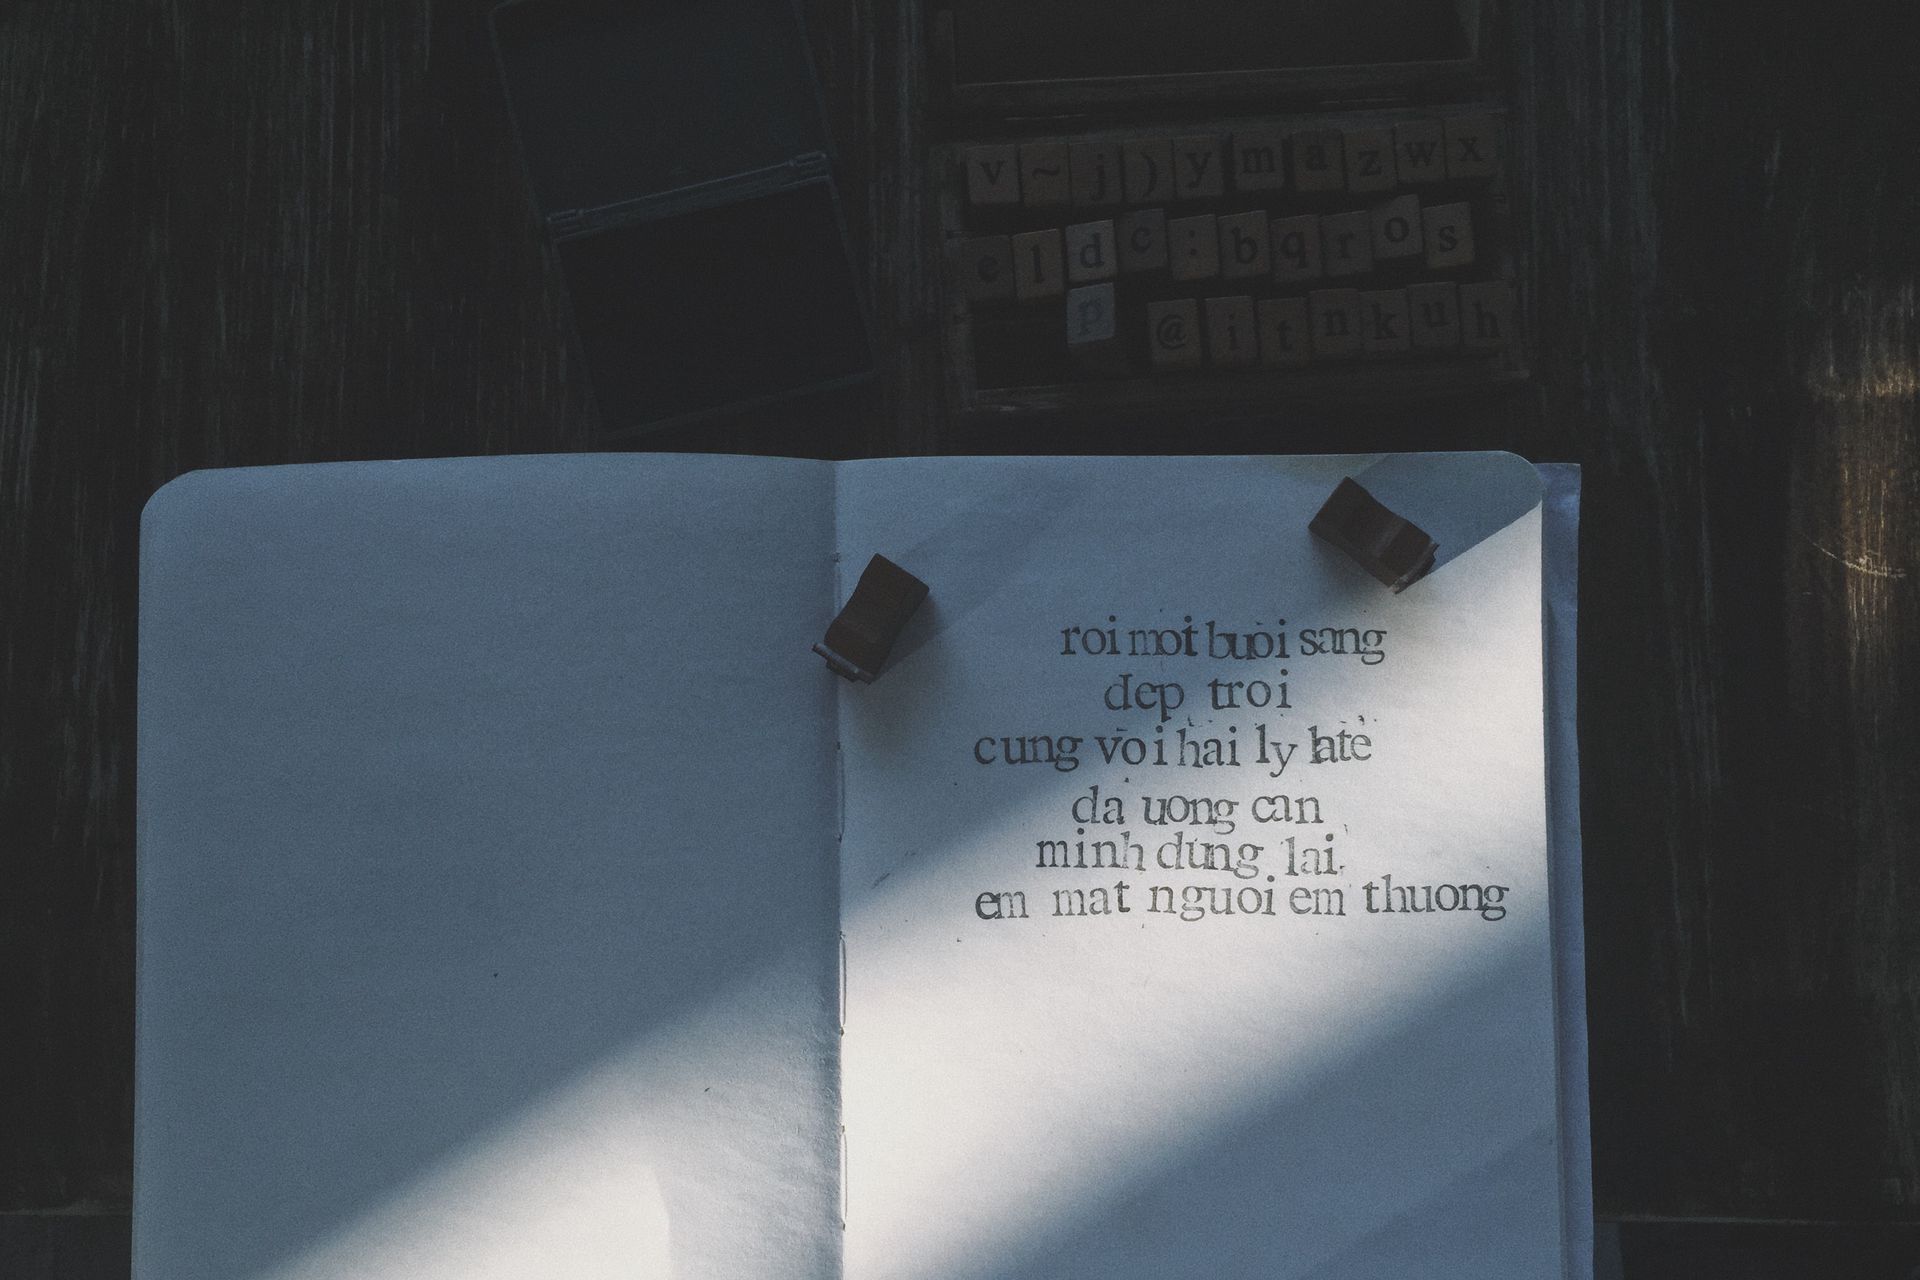 v ~ j ) y m a z w x
e l d c : b q r o s
p @ i t n k u h
roi mot buoi sang
dep troi
cung voi hai ly late
da uong can
minh dung lai
em mat nguoi em thuong